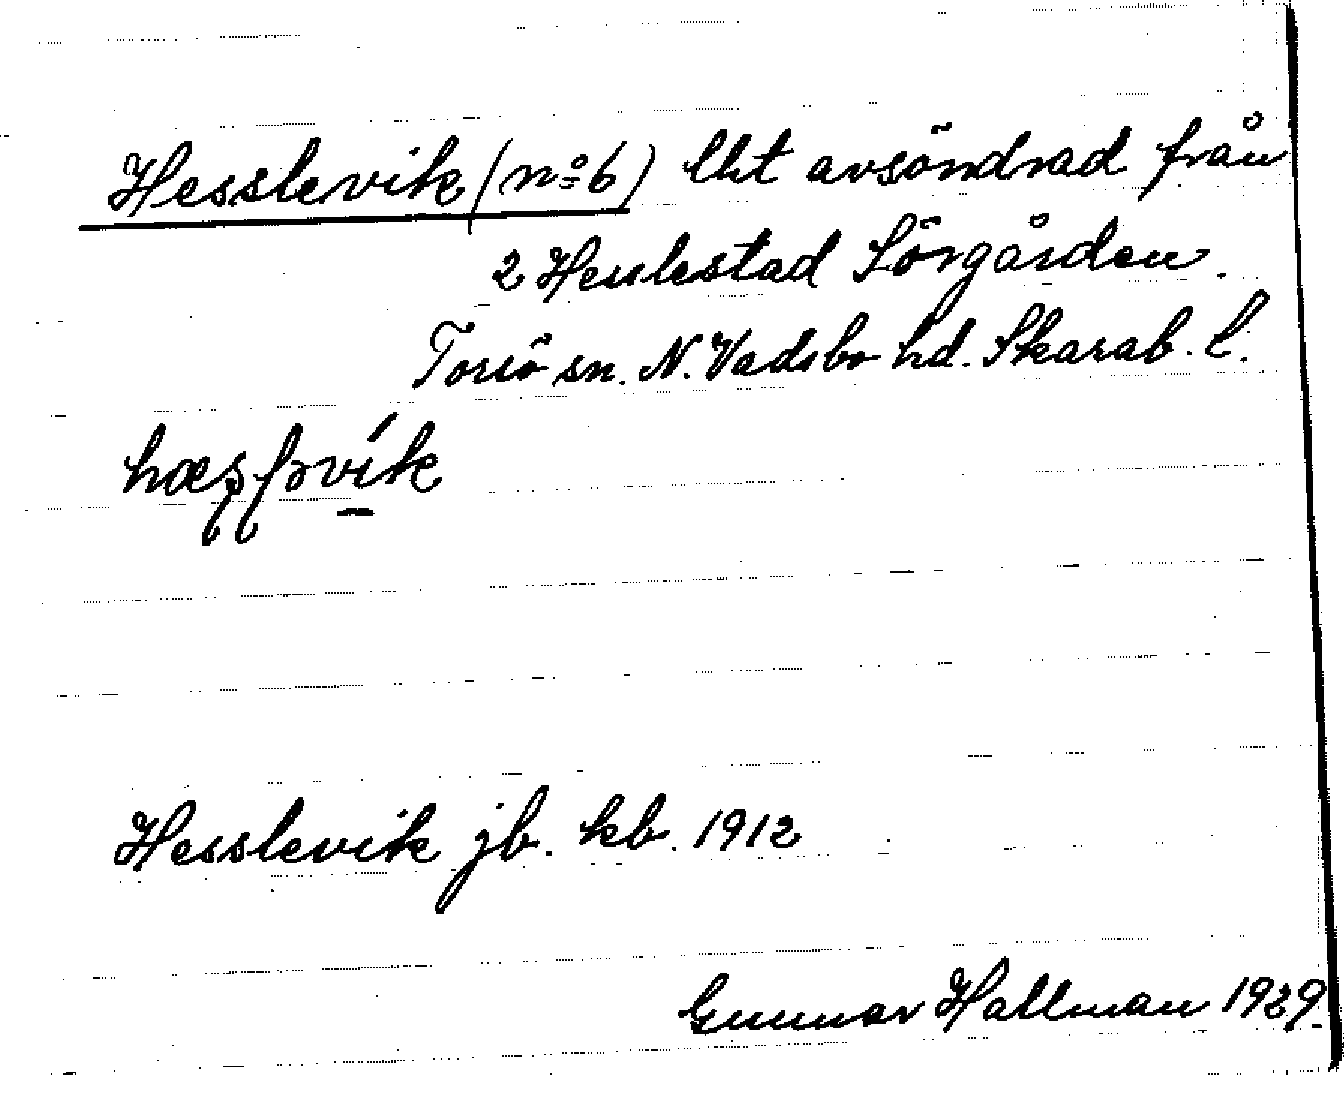 Hesslevik (nº 6) lht avsöndrad från
2 Henlestad Sörgården.
Torsö sn. N. Vadsbo hd. Skarab. l.
Hesslevik jb. kb. 1912
Gunnar Hallman 1929